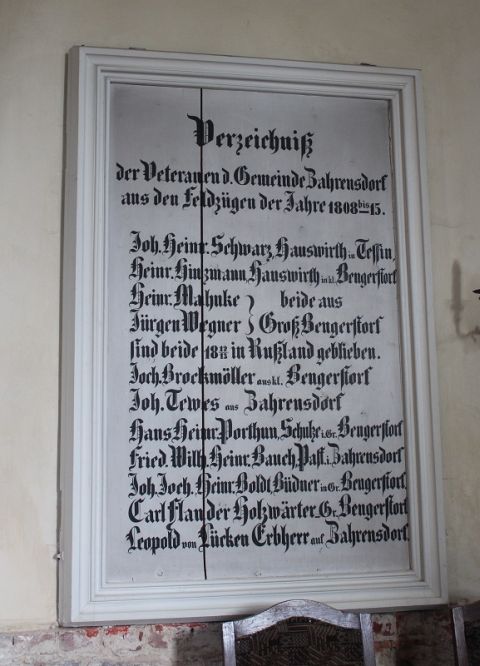 Verzeichniß
der Veteranen d. Gemeinde Zahrensdorf
aus den Feldzügen der Jahre 1808 bis 15.
Joh. Heinr. Schwarz, Hauswirth in Tessin,
Heinr. Hinzmann, Hauswirth in kl. Bengerstorf
Heinr. Mahnke } beide aus
Jürgen Wegner } Groß Bengerstorf
sind beide in Rußland geblieben.
Joch. Brockmöller aus kl. Bengerstorf
Joh. Tewes aus Zahrensdorf
Hans Heinr. Porthun, Schulze i. Gr. Bengerstorf
Fried. Wilh. Heinr. Bauch, Past. i. Zahrensdorf
Joh. Joch. Heinr. Boldt, Büdner in Gr. Bengerstorf,
Carl Flander Holzwärter, Gr. Bengerstorf
Leopold von Lücken Erbherr auf Zahrensdorf.